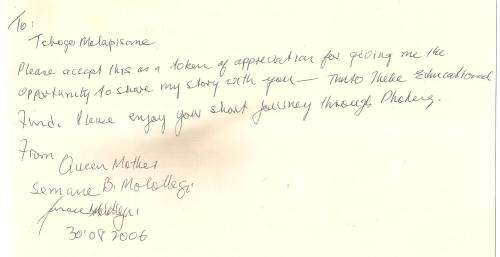 To:
Tebogo Molapisane
Please accept this as a token of appreciation for giving me the
opportunity to share my story with you — Educational
Fund. Please enjoy your short journey through Phokeng.
From
Queen Mother
Semane B. Molotlegi
30.08 2006